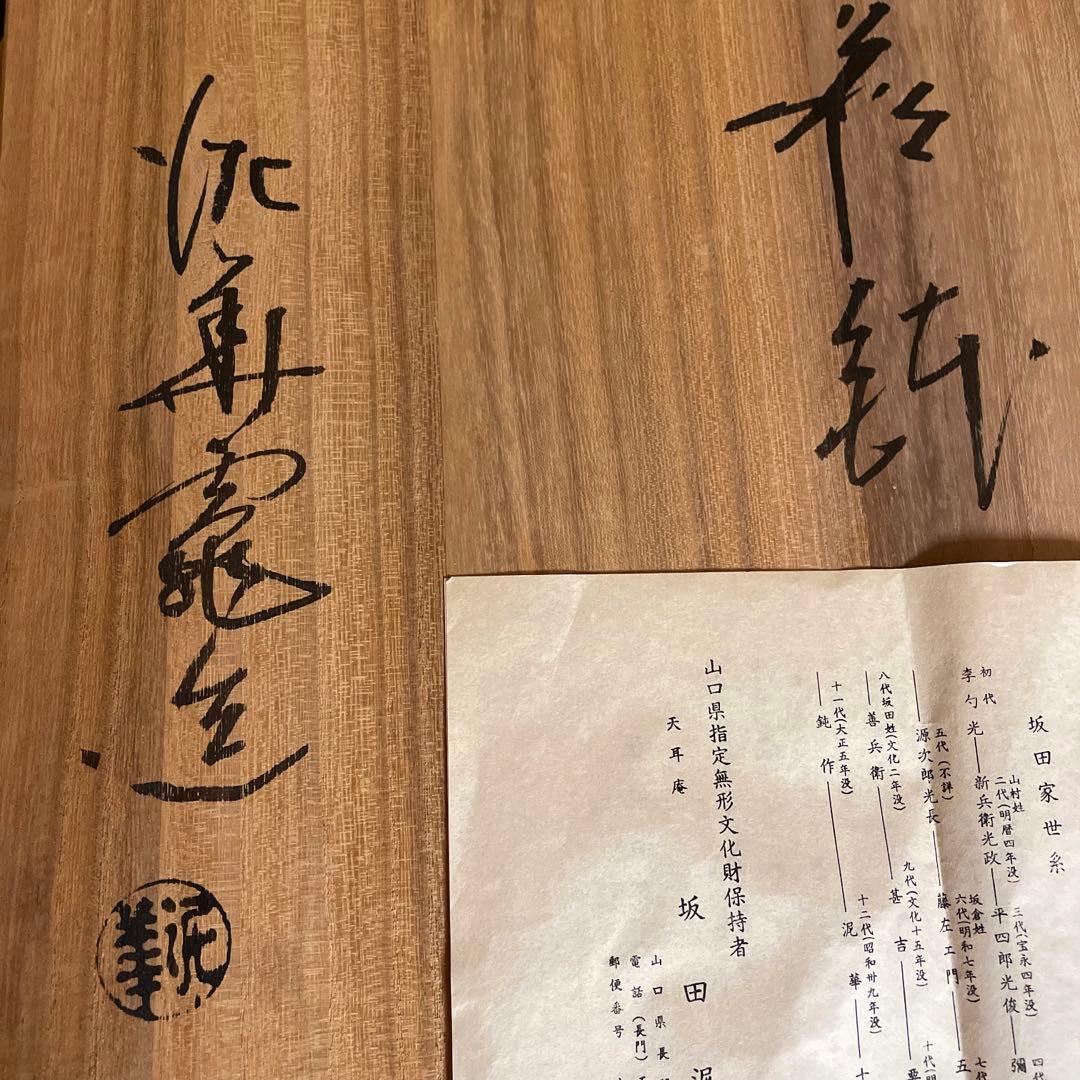 萩鉢
泥華窯造
泥華
坂田家世系
初代
李勺光
山村姓
二代(明暦四年没)
新兵衛光政
三代(宝永四年没)
平四郎光俊
四代
彌
五代(不詳)
源次郎光長
坂倉姓
六代(明和七年没)
藤左エ門
七代
五
八代坂田姓(文化二年没)
善兵衛
九代(文化十五年没)
甚吉
十代(明
十一代(大正五年没)
鈍作
十二代(昭和卅九年没)
泥華
十
山口県指定無形文化財保持者
天耳庵 坂田泥
山口県長
電話(長門)
郵便番号